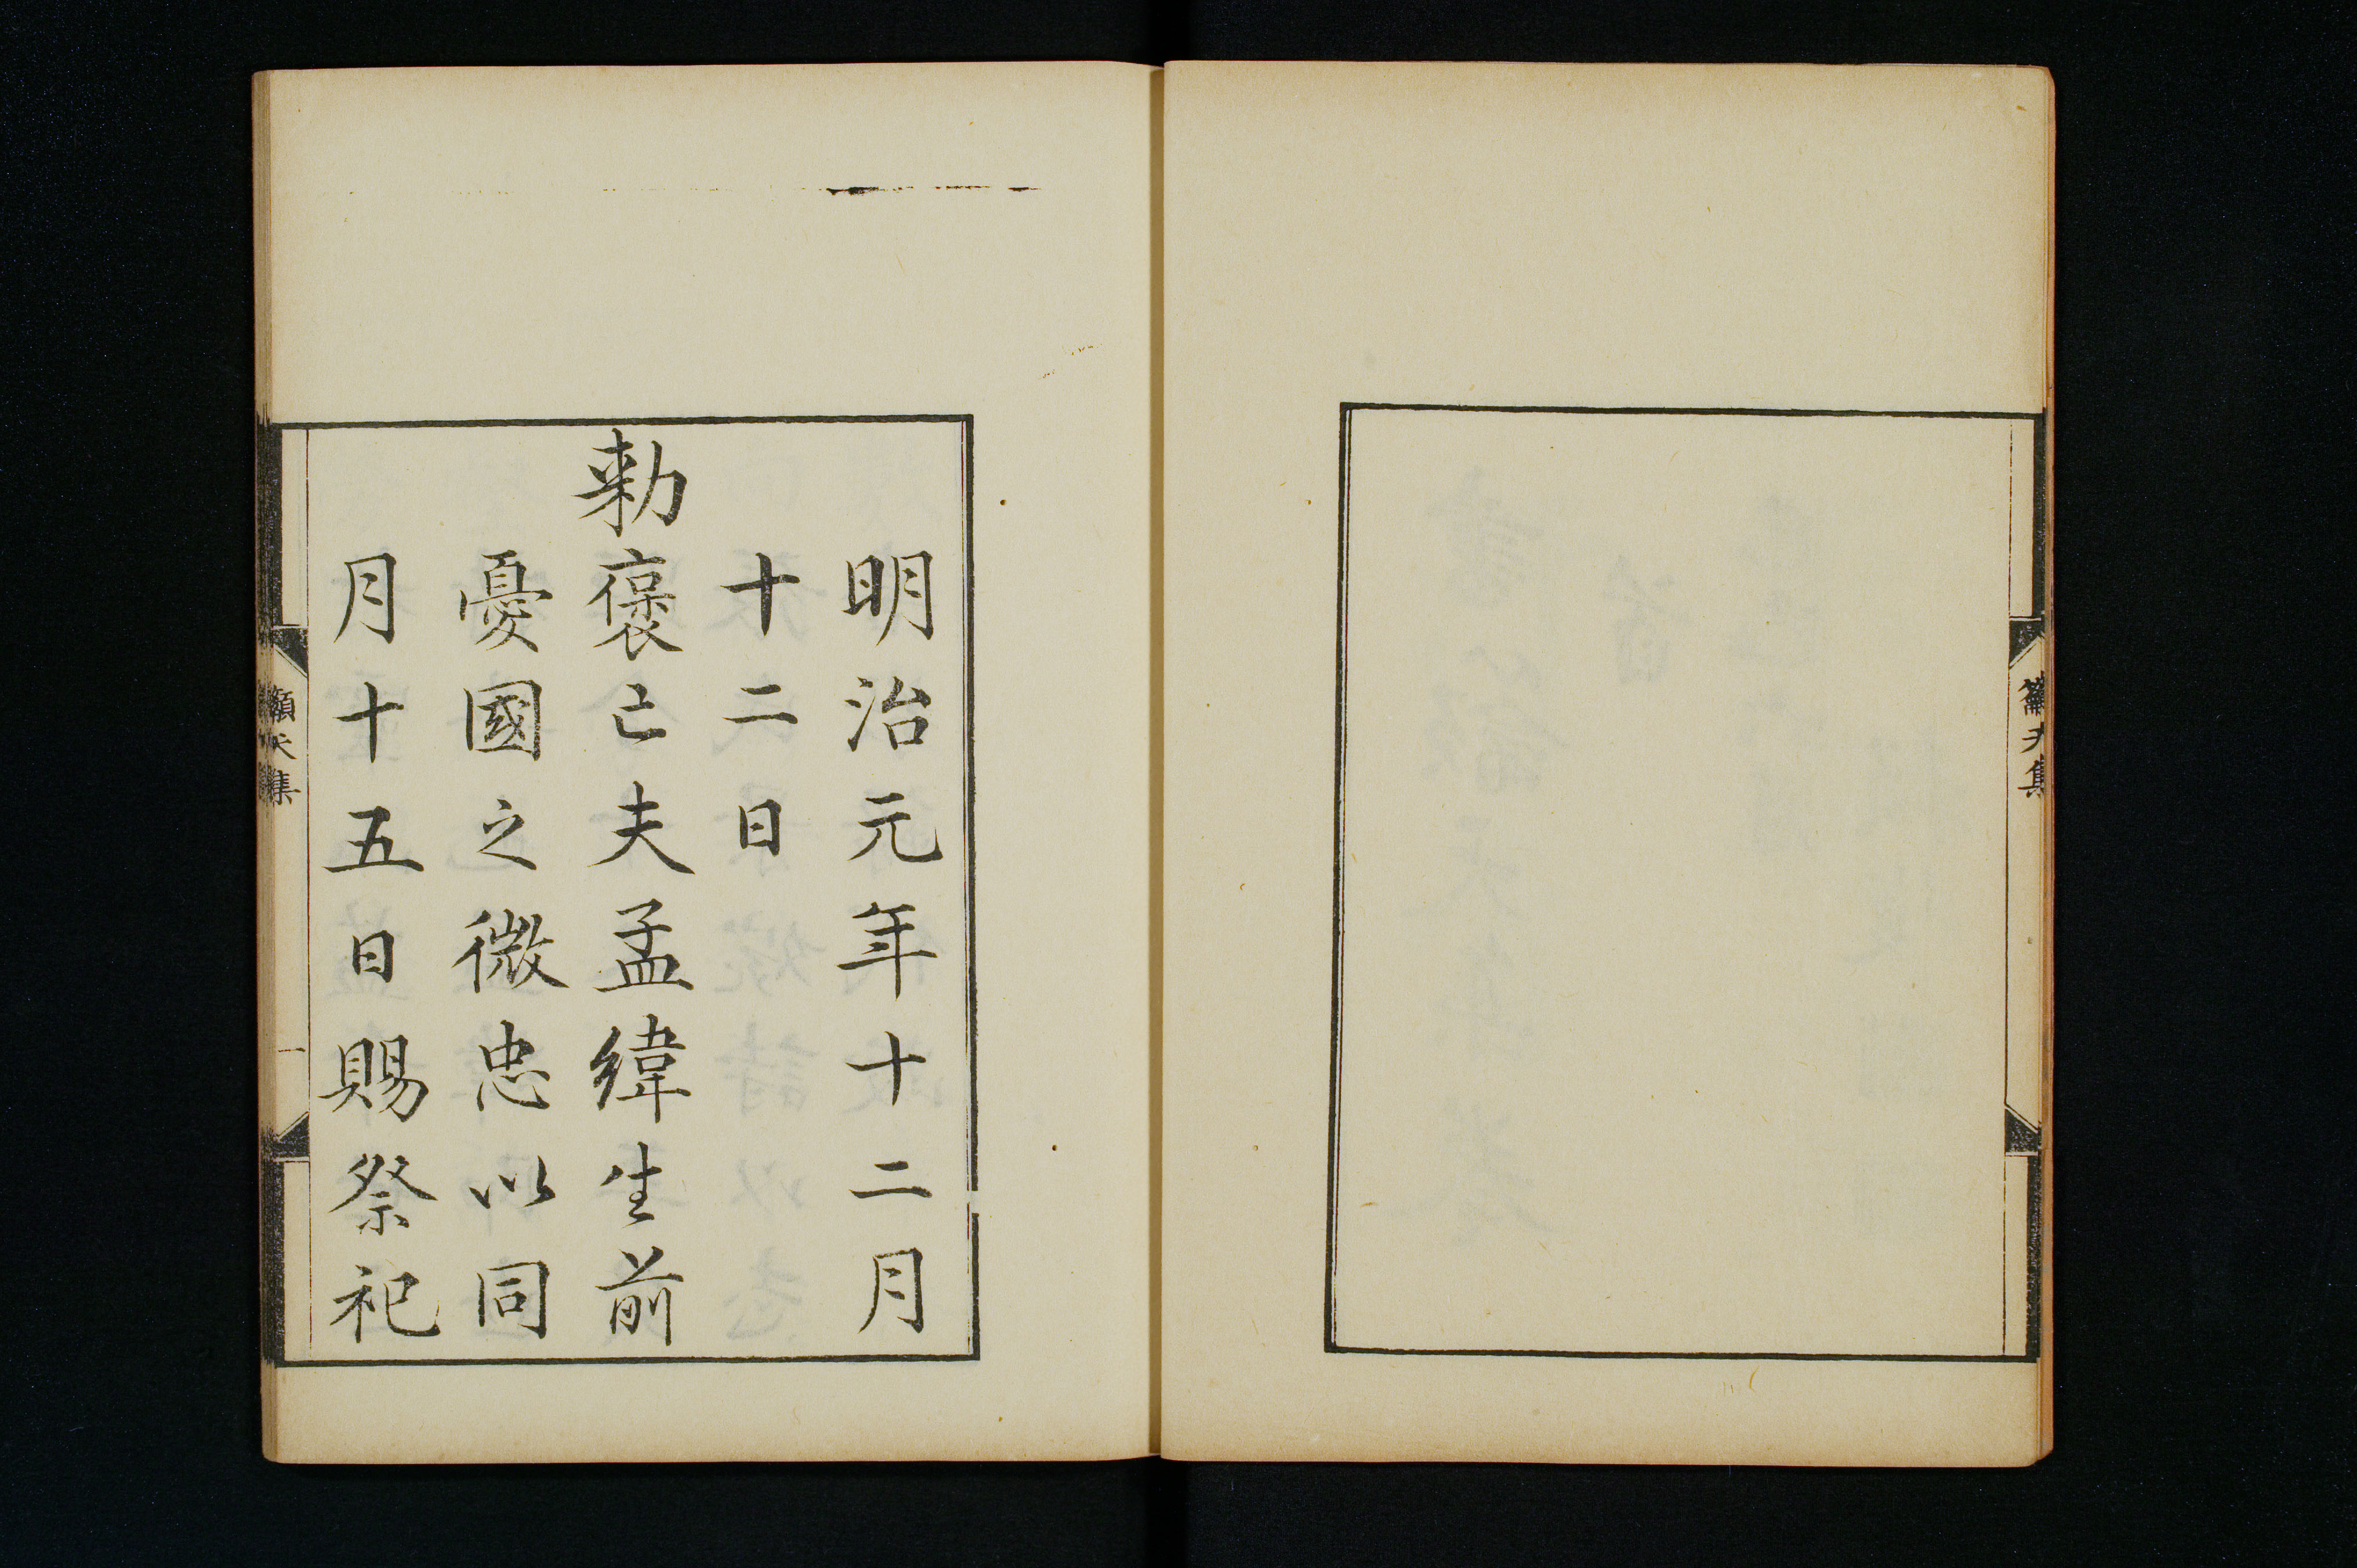 明治元年十二月
十二日
勑褒亡夫孟緯生前
憂國之微忠以同
月十五日賜祭祀
籲天集
一